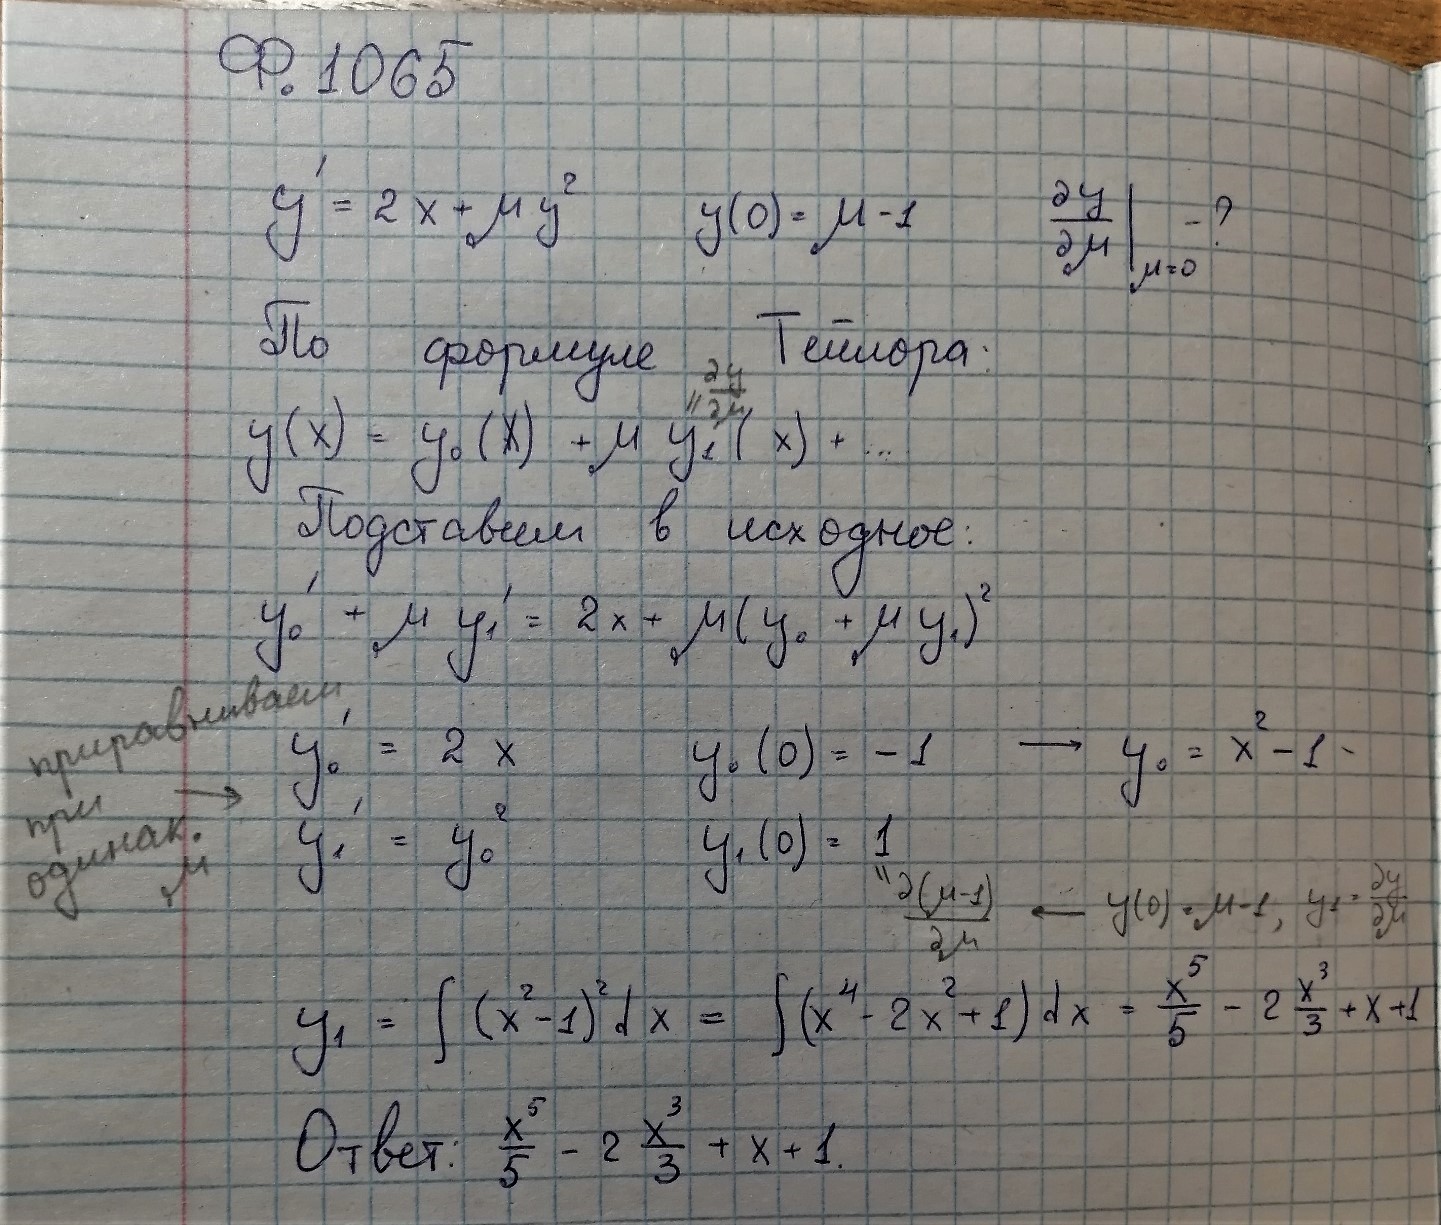 Ф. 1065
y' = 2x + μy² y(0) = μ - 1 ∂y/∂μ|μ=0 - ?
По формуле Тейлора:
y(x) = y₀(x) + μ y₁(x) + ...
" ∂y/∂μ
Подставим в исходное:
y₀' + μ y₁' = 2x + μ(y₀ + μ y₁)²
приравниваем
при
одинак.
μ
→
y₀' = 2x y₀(0) = -1 → y₀ = x² - 1
y₁' = y₀² y₁(0) = 1
" ∂(μ-1)/∂μ ← y(0) = μ-1, y₁ = ∂y/∂μ
y₁ = ∫(x² - 1)² dx = ∫(x⁴ - 2x² + 1) dx = x⁵/5 - 2 x³/3 + x + 1
Ответ: x⁵/5 - 2 x³/3 + x + 1.